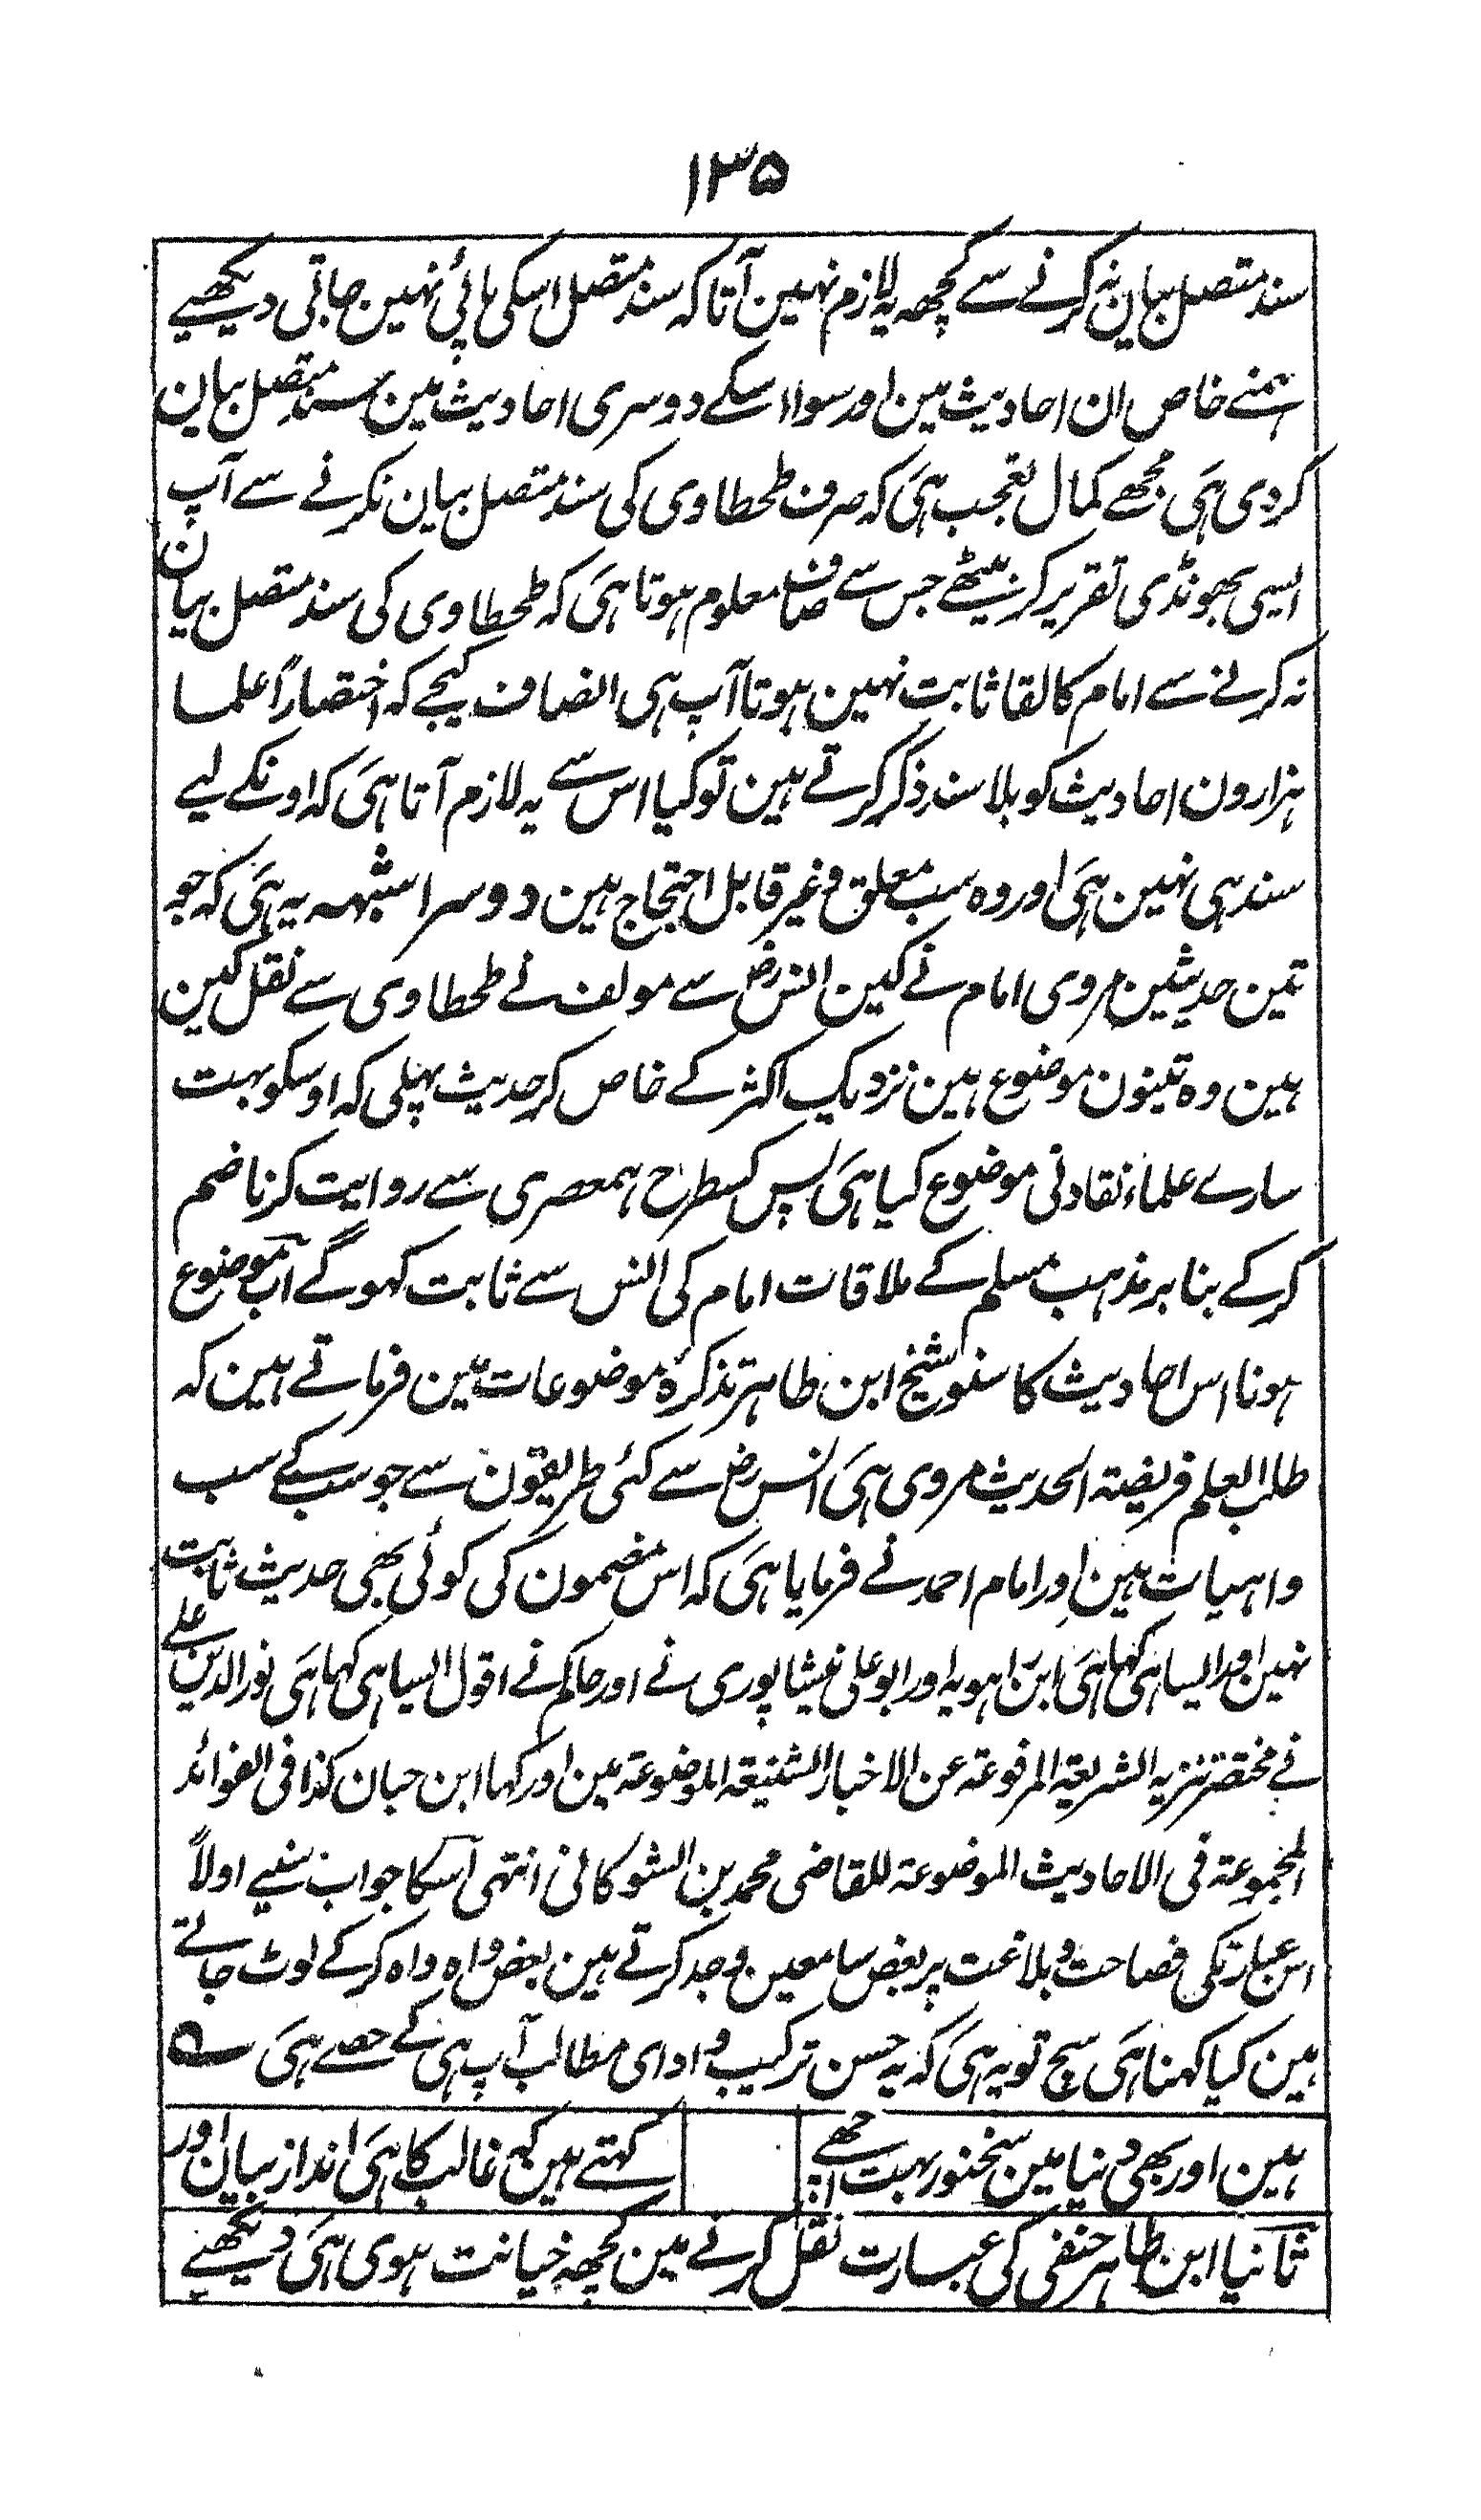 ۱۳۵
سند متصل بیان نہ کرنے سے کچھہ یہ لازم نہین آتا کہ سند متصل اسکی پائی نہین جاتی دیکھیے
ہمنے خاص ان احادیث مین اور سوا اسکے دوسری احادیث مین سند متصل بیان
کردی ہی مجھے کمال تعجب ہی کہ صرف طحطاوی کی سند متصل بیان نکرنے سے آپ
ایسی بھونڈی تقریر کر بیٹھے جس سے صاف معلوم ہوتا ہی کہ طحطاوی کی سند متصل بیان
نہ کرنے سے امام کا لقا ثابت نہین ہوتا آپ ہی انصاف کیجے کہ اختصاراً علما
ہزارون احادیث کو بلا سند ذکر کرتے ہین تو کیا اس سے یہ لازم آتا ہی کہ اونکے لیے
سند ہی نہین ہی اور وہ سب معلق و غیر قابل احتجاج ہین دوسرا شبہہ یہ ہی کہ جو
تین حدیثین مروی امام نے کین انس رض سے مولف نے طحطاوی سے نقل کین
ہین وہ تینون موضوع ہین نزدیک اکثر کے خاص کر حدیث پہلی کہ اوسکو بہت
سارے علماء نقاد نی موضوع کیا ہی پس کسطرح ہمعصری سے روایت کرنا ضم
کرکے بنا بر مذہب مسلم کے ملاقات امام کی انس سے ثابت کہوگے اب موضوع
ہونا اس احادیث کا سنو شیخ ابن طاہر تذکرۂ موضوعات مین فرماتے ہین کہ
طلب العلم فریضۃ الحدیث مروی ہی انس رض سے کئی طریقون سے جو سب کے سب
واہیات ہین اور امام احمد نے فرمایا ہی کہ اس مضمون کی کوئی بھی حدیث ثابت
نہین اور ایسا ہی کہا ہی ابن راہویہ اور ابو علی نیشاپوری نے اور حاکم نے اقول ایسا ہی کہا ہی نور الدین علی
نے مختصر تنزیہ الشریعۃ المرفوعۃ عن الاخبار الشنیعۃ الموضوعۃ مین اور کہا ابن حبان کذا فی الفوائد
المجموعۃ فی الاحادیث الموضوعۃ للقاضی محمد بن الشوکانی انتہی اسکا جواب سنیے اولاً
اس عبارتکی فصاحت و بلاغت پر بعض سامعین وجد کرتے ہین بعض واہ واہ کرکے لوٹ جاتے
ہین کیا کہنا ہی سچ تو یہ ہی کہ یہ حسن ترکیب و ادای مطالب آپ ہی کے حصے ہی ؎
ہین اور بھی دنیا مین سخنور بہت اچھے
کہتے ہین کہ غالب کا ہی انداز بیان اور
ثانیا ابن طاہر حنفی کی عبارت نقل کرنے مین کچھہ خیانت ہوی ہی دیکھیے